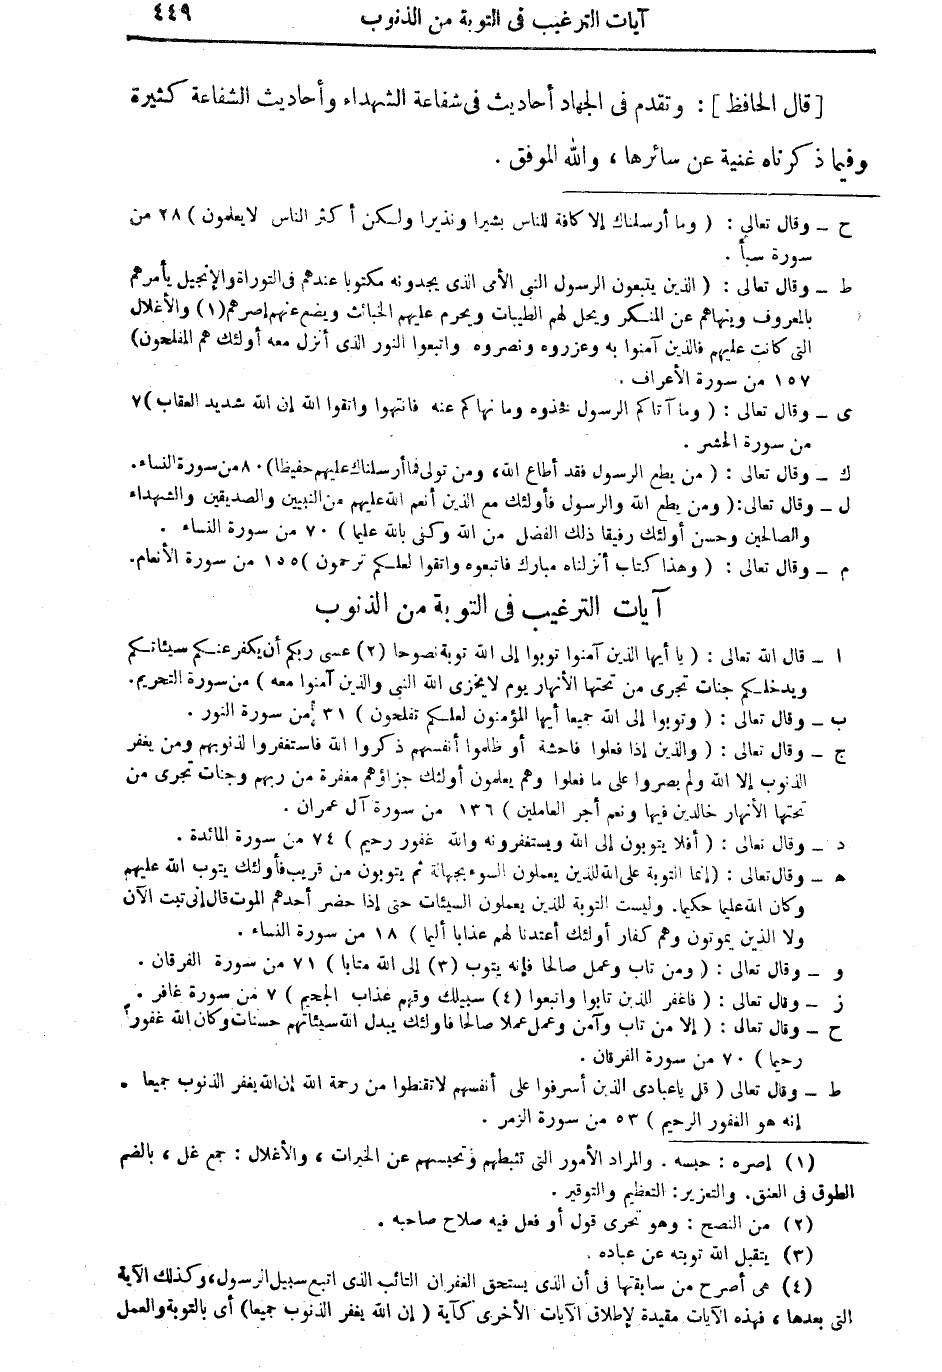 آيات الترغيب فى التوبة من الذنوب
٤٤٩
[ قال الحافظ ] : وتقدم فى الجهاد أحاديث فى شفاعة الشهداء وأحاديث الشفاعة كثيرة
وفيما ذكرناه غنية عن سائرها ، والله الموفق .
ح ــ وقال تعالى : ( وما أرسلناك إلا كافة للناس بشيرا ونذيرا ولكن أكثر الناس لا يعلمون ) ٢٨ من
سورة سبأ .
ط ــ وقال تعالى : ( الذين يتبعون الرسول النبى الأمى الذى يجدونه مكتوبا عندهم فى التوراة والإنجيل يأمرهم
بالمعروف وينهاهم عن المنكر ويحل لهم الطيبات ويحرم عليهم الخبائث ويضع عنهم إصرهم (١) والأغلال
التى كانت عليهم فالذين آمنوا به وعزروه ونصروه واتبعوا النور الذى أنزل معه أولئك هم المفلحون)
١٥٧ من سورة الأعراف .
ى ــ وقال تعالى : ( وما آتاكم الرسول فخذوه وما نهاكم عنه فانتهوا واتقوا الله إن الله شديد العقاب )٧
من سورة الحشر .
ك ــ وقال تعالى : ( من يطع الرسول فقد أطاع الله، ومن تولى فما أرسلناك عليهم حفيظا) ٨٠ من سورة النساء.
ل ــ وقال تعالى:( ومن يطع الله والرسول فأولئك مع الذين أنعم الله عليهم من النبيين والصديقين والشهداء
والصالحين وحسن أولئك رفيقا ذلك الفضل من الله وكفى بالله عليما ) ٧٠ من سورة النساء .
م ــ وقال تعالى : ( وهذا كتاب أنزلناه مبارك فاتبعوه واتقوا لعلكم ترحمون )١٥٥ من سورة الأنعام.
آيات الترغيب فى التوبة من الذنوب
ا ــ قال الله تعالى : ( يا أيها الذين آمنوا توبوا إلى الله توبة نصوحا (٢) عسى ربكم أن يكفر عنكم سيئاتكم
ويدخلكم جنات تجرى من تحتها الأنهار يوم لا يخزى الله النبى والذين آمنوا معه ) من سورة التحريم.
ب ــ وقال تعالى : ( وتوبوا إلى الله جميعا أيها المؤمنون لعلكم تفلحون ) ٣١ من سورة النور .
ج ــ وقال تعالى : ( والذين إذا فعلوا فاحشة أو ظلموا أنفسهم ذكروا الله فاستغفروا لذنوبهم ومن يغفر
الذنوب إلا الله ولم يصروا على ما فعلوا وهم يعلمون أولئك جزاؤهم مغفرة من ربهم وجنات تجرى من
تحتها الأنهار خالدين فيها ونعم أجر العاملين ) ١٣٦ من سورة آل عمران .
د ــ وقال تعالى : ( أفلا يتوبون إلى الله ويستغفرونه والله غفور رحيم ) ٧٤ من سورة المائدة .
هـ ــ وقال تعالى : (إنما التوبة على الله للذين يعملون السوء بجهالة ثم يتوبون من قريب فأولئك يتوب الله عليهم
وكان الله عليما حكيما. وليست التوبة للذين يعملون السيئات حتى إذا حضر أحدهم الموت قال إنى تبت الآن
ولا الذين يموتون وهم كفار أولئك أعتدنا لهم عذابا أليما ) ١٨ من سورة النساء .
و ــ وقال تعالى : ( ومن تاب وعمل صالحا فإنه يتوب (٣) إلى الله متابا ) ٧١ من سورة الفرقان .
ز ــ وقال تعالى : ( فاغفر للذين تابوا واتبعوا (٤) سبيلك وقهم عذاب الجحيم ) ٧ من سورة غافر .
ح ــ وقال تعالى : ( إلا من تاب وآمن وعمل عملا صالحا فأولئك يبدل الله سيئاتهم حسنات وكان الله غفورا
رحيما ) ٧٠ من سورة الفرقان .
ط ــ وقال تعالى ( قل يا عبادى الذين أسرفوا على أنفسهم لا تقنطوا من رحمة الله إن الله يغفر الذنوب جميعا .
إنه هو الغفور الرحيم ) ٥٣ من سورة الزمر .
(١) إصره : حبسه . والمراد الأمور التى تثبطهم وتحبسهم عن الخيرات ، والأغلال : جمع غل ، بالضم
الطوق فى العنق. والتعزير: التعظيم والتوقير .
(٢) من النصح : وهو تحرى قول أو فعل فيه صلاح صاحبه .
(٣) يتقبل الله توبته عن عباده .
(٤) هى أصرح من سابقتها فى أن الذى يستحق الغفران التائب الذى اتبع سبيل الرسول، وكذلك الآية
التى بعدها ، فهذه الآيات مقيدة لإطلاق الآيات الأخرى كآية ( إن الله يغفر الذنوب جميعا) أى بالتوبة والعمل